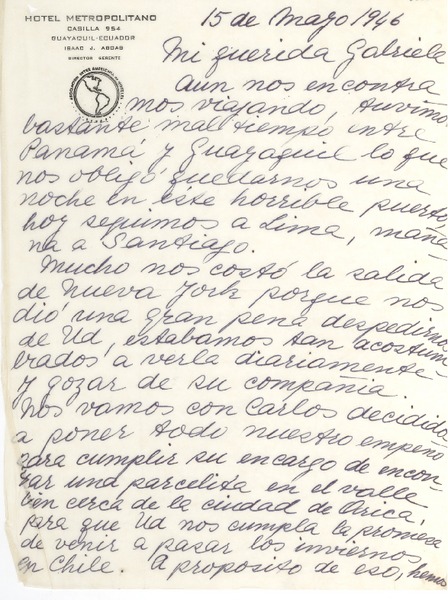 HOTEL METROPOLITANO
CASILLA 954
GUAYAQUIL-ECUADOR
ISAAC J. ABOAB
DIRECTOR GERENTE
15 de Mayo 1946
Mi querida Gabriela
Aun nos encontra
mos viajando, tuvimo
bastante mal tiempo intre
Panamá y Guayaquil lo que
nos obligó quedarnos una
noche en éste horrible puerto
hoy seguimos a Lima, maña
na a Santiago.
Mucho nos costó la salida
de Nueva York porque nos
dió una gran pena despedirno
de Ud, estabamos tan acostum
brados a verla diariamente
y gozar de su compania.
Nos vamos con Carlos decididos
a poner todo nuestro empeño
para cumplir su encargo de encon
trar una parcelita en el valle
bien cerca de la ciudad de Arica,
para que Ud nos cumpla la promesa
de venir a pasar los inviernos
en Chile. A proposito de eso, hemos